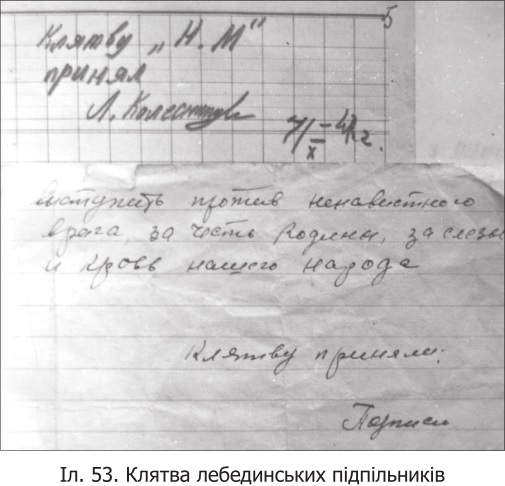 5
Клятву „Н. М"
принял
Л. Колесников
7/X – 41 г.
выступить против ненавистного
врага, за честь Родины, за слезы
и кровь нашего народа
Клятву приняли:
Подписи
Іл. 53. Клятва лебединських підпільників